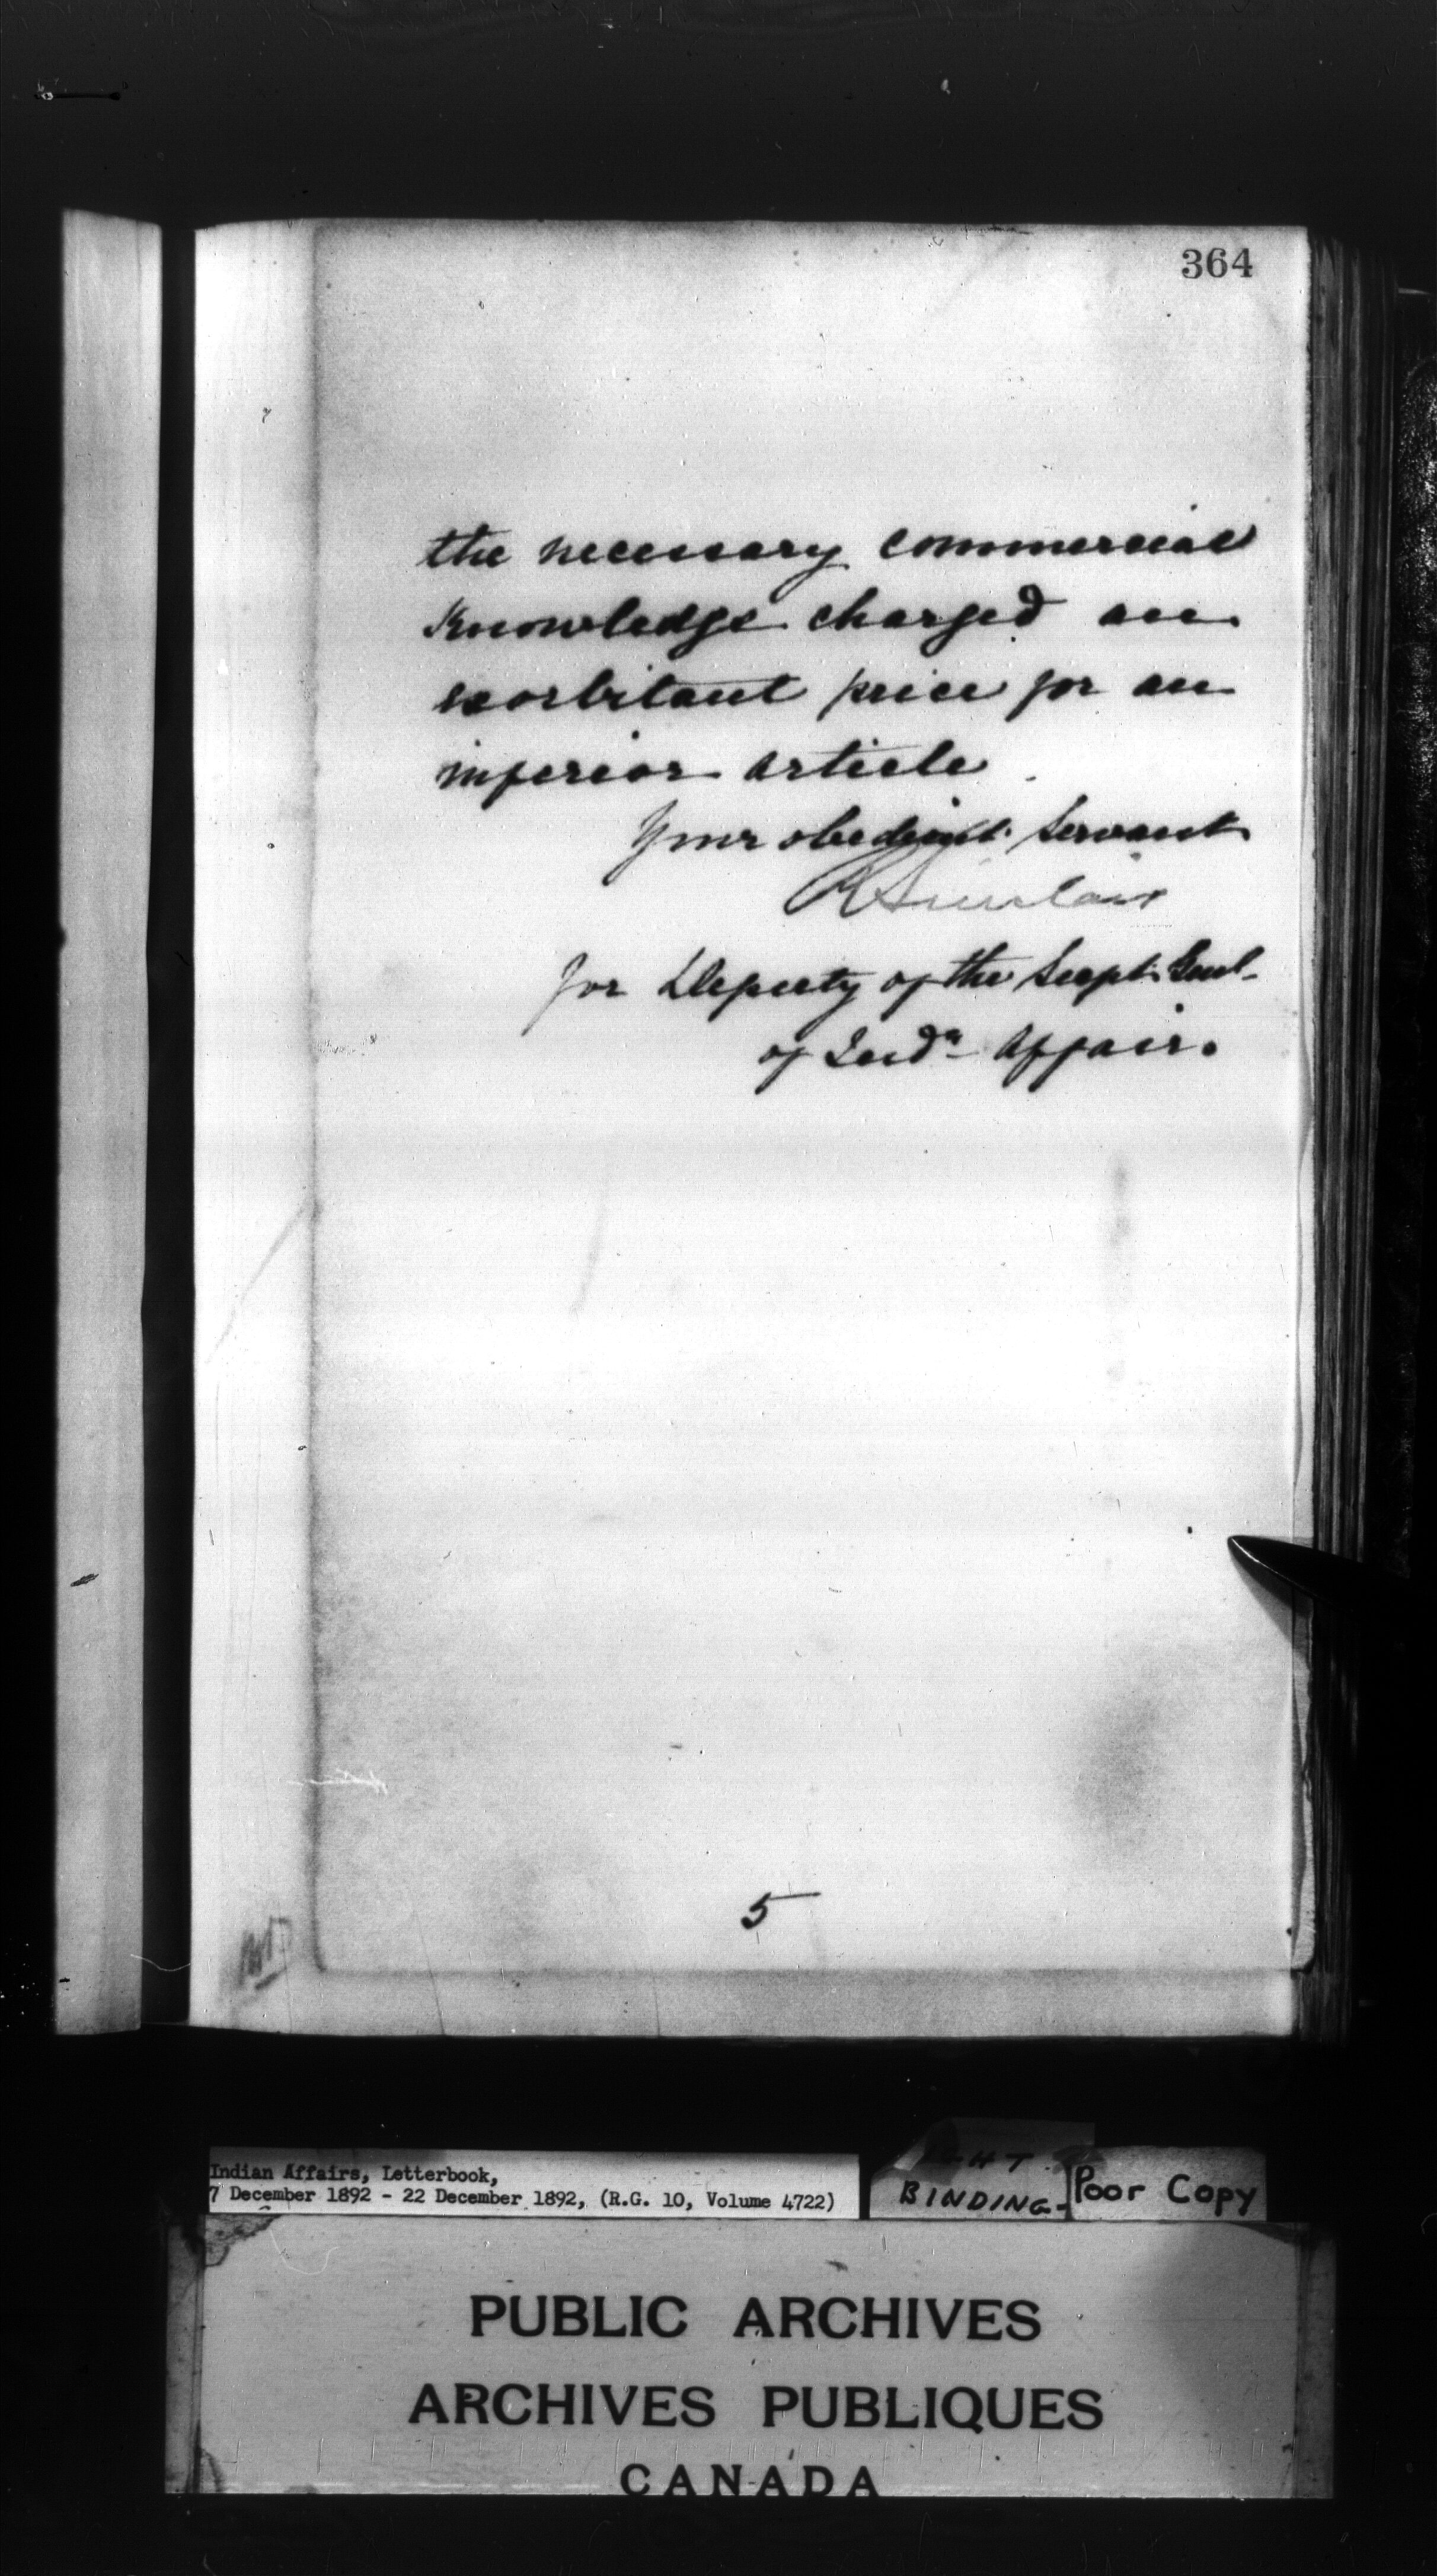 364
the necessary commercial
Knowledge charged an
exorbitant price for an
inferior article
Your obedient Servant
R Sinclair
for Deputy of the Supt. Genl.
of Indn Affairs.
5
Indian Affairs, Letterbook,
7 December 1892 - 22 December 1892, (R.G. 10, Volume 4722)
BINDING-
Poor Copy
PUBLIC ARCHIVES
ARCHIVES PUBLIQUES
CANADA